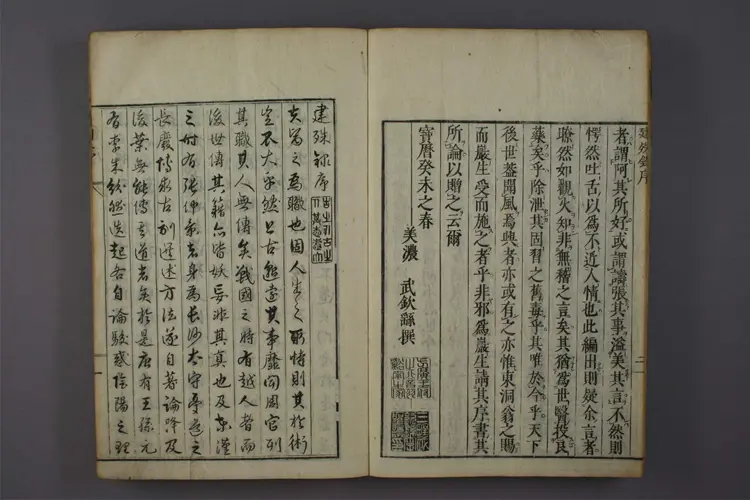 者謂阿其所好或謂譸張其事溢美其言不然則
愕然吐舌以爲不近人情也此編出則疑余言者
瞭然如觀火知非無稽之言矣其猶爲世醫投良
藥矣乎除泄其固習之舊毒乎其唯於今乎天下
後世蓋聞風焉興者亦或有之亦惟東洞翁之賜
而嚴生受而施之者乎非邪爲嚴生請其序書其
所論以贈之云爾
寶曆癸未之春
美濃 武欽繇撰
建殊錄序
夫醫之爲職也固人生之所恃則其於術
豈不大乎然上古邈其事靡聞周官列
其職其人無傳矣戰國之時有越人者而
後世傳其籍亦皆妖妄非其真也及東漢
之世有張仲景者身爲長沙太守
長慶博求古訓選述方法遂自著論
後葉無能傳其道者矣於是唐有王
有李朱紛然迭起各自論駁惑陰陽之理